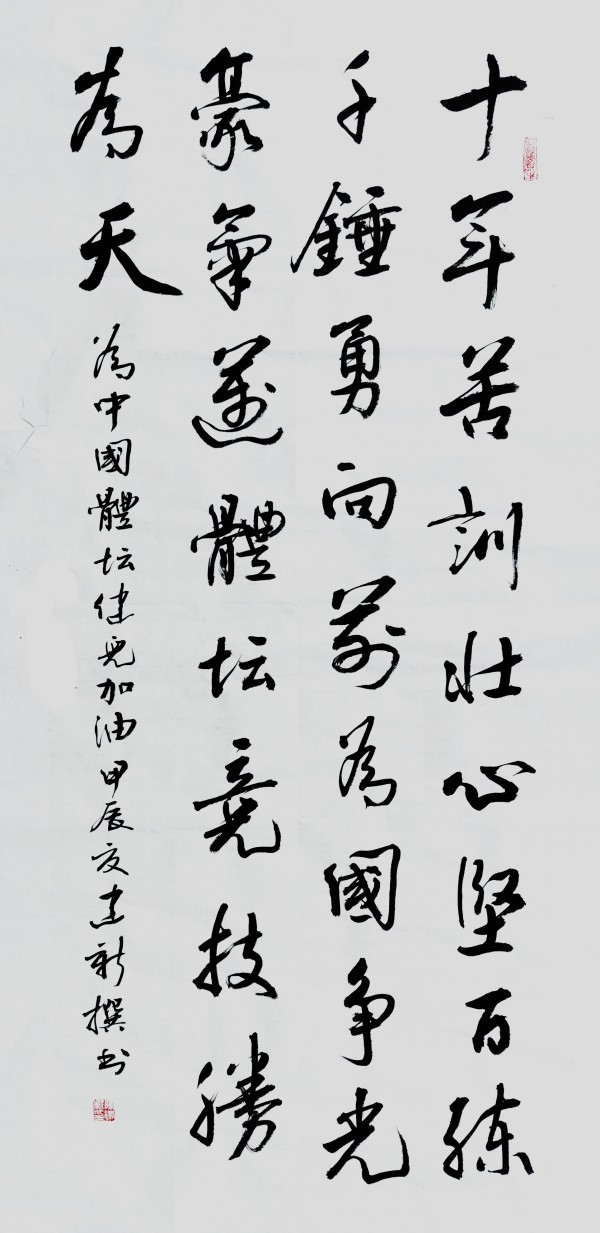 十年苦訓壮心堅百練
千錘勇向前為國争光
豪氣邁體坛竞技勝
為天 為中國體坛健兒加油甲辰夏建新撰书